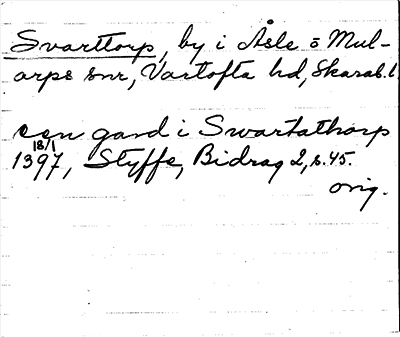 Svarttorp, by i Åsle o Mul-
arps snr, Vartofta hd, Skarab.l.
een gard i Swartathorp
18/1
1397, Styffe, Bidrag 2, s. 45.
orig.